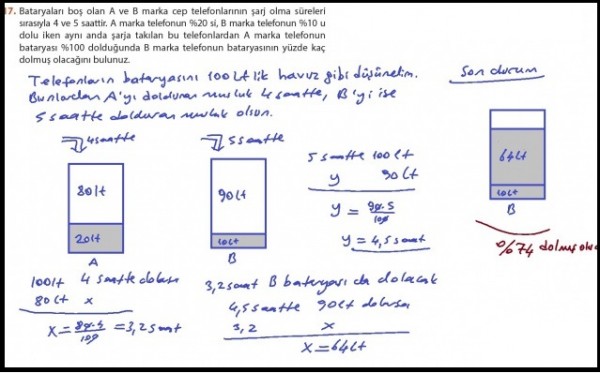 17. Bataryaları boş olan A ve B marka cep telefonlarının şarj olma süreleri
sırasıyla 4 ve 5 saattir. A marka telefonun %20 si, B marka telefonun %10 u
dolu iken aynı anda şarja takılan bu telefonlardan A marka telefonun
bataryası %100 dolduğunda B marka telefonun bataryasının yüzde kaç
dolmuş olacağını bulunuz.
Telefonların bataryasını 100 Lt lik havuz gibi düşünelim.
Bunlardan A'yı dolduran musluk 4 saatte, B'yi ise
5 saatte dolduran musluk olsun.
4 saatte
80 lt
20 lt
A
100 lt 4 saatte dolarsa
80 lt x
x = 80.4/100 = 3,2 saat
5 saatte
90 lt
10 lt
B
5 saatte 100 lt
y 90 lt
y = 90.5/100
y = 4,5 saat
3,2 saat B bataryası da dolacak
4,5 saatte 90 lt dolarsa
3,2 x
x = 64 lt
Son durum
64 lt
10 lt
B
%74 dolmuş